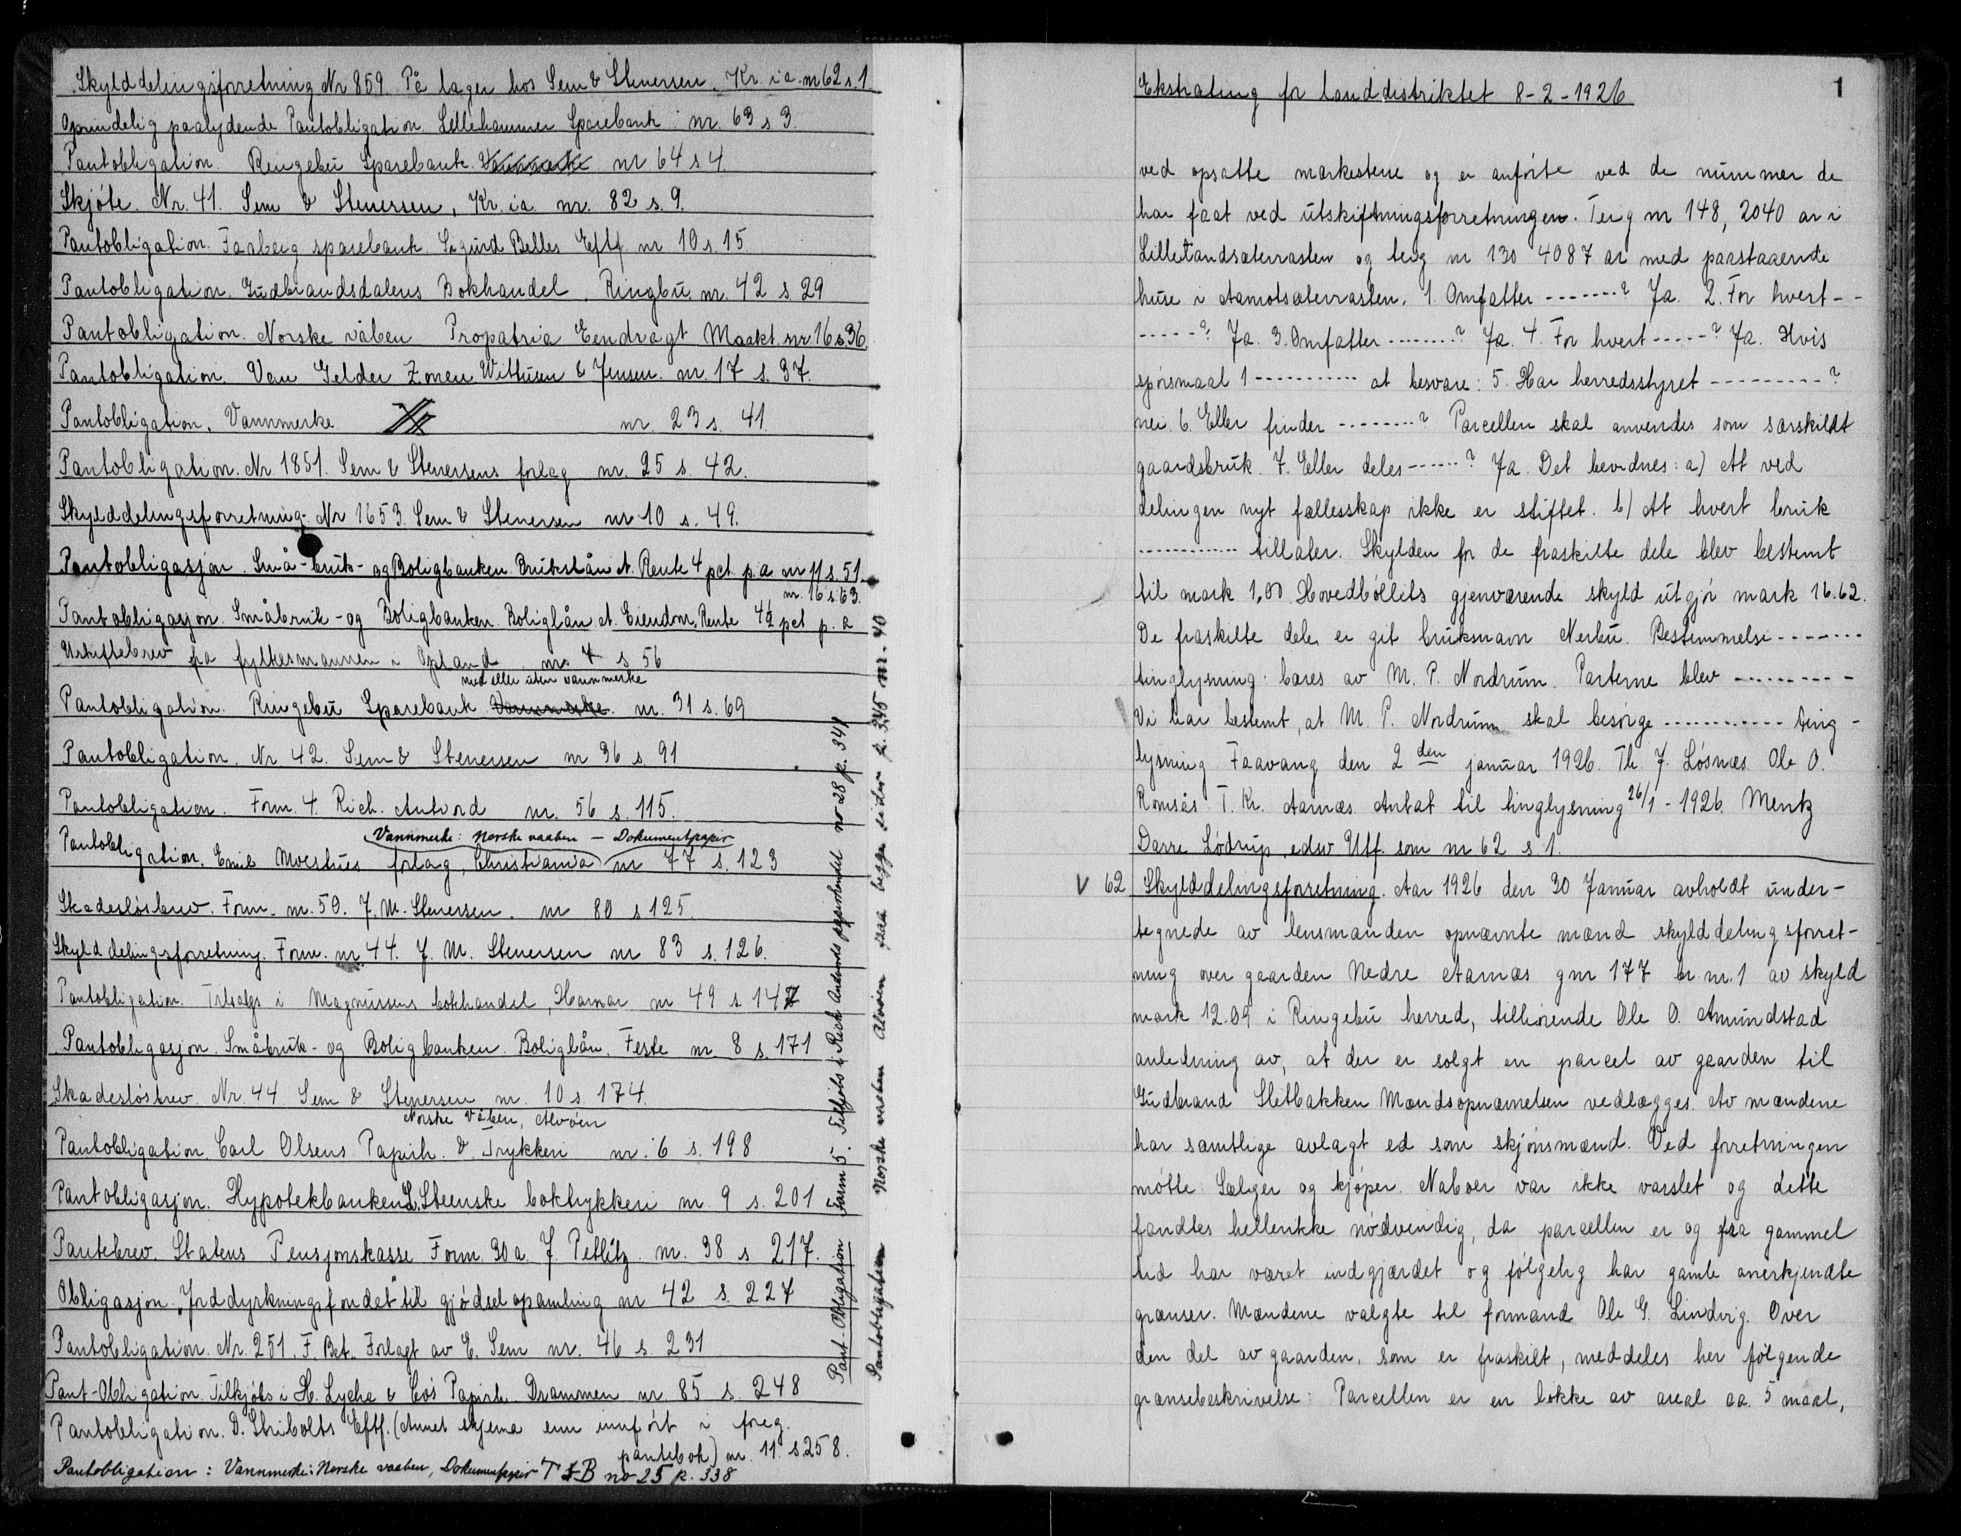 Skylddelingsforretning Nr 859. På lager hos Sem & Stenersen. Kr. ia. nr 62 s. 1
Oprindelig paalydende Pantobligation Lillehammer Sparebank nr. 63 s 3.
Pantobligation. Ringebu Sparebank. Vannmerke nr 64 s 4.
Skjöte. Nr. 41. Sem & Stenersen, Kr. ia. nr. 82 s. 9.
Pantobligation. Faaberg sparebank. Sigurd Belles Eftf nr 10 s. 15
Pantobligation. Gudbrandsdalens Bokhandel, Ringbu, nr. 42 s 29
Pantobligation. Norske våben Propatria Eendragt Maakt. nr 16 s. 36.
Pantobligation. Van Gelder Zonen Withusen & Jensen. nr. 17 s. 37.
Pantobligation. Vannmerke nr. 23 s. 41.
Pantobligation. Nr. 1851. Sem & Stenersens forlag nr. 25 s. 42.
Skylddelingsforretning. Nr 1653. Sem & Stenersen nr 10 s. 49.
Pantobligasjon. Små-bruk- og Boligbanken Brukslån A. Rente 4 pct. p.a nr 11 s. 51.
nr. 16 s. 63.
Pantobligasjon. Småbruk- og Boligbanken. Boliglån A. Eiendom, Rente 4½ pct p. a
Utskiftebrev fra fylkesmannen i Opland nr. 7 s 56
med eller uten vannmerke
Pantobligation. Ringebu Sparebank Vannmerke. nr. 31 s. 69
Pantobligation. Nr 42. Sem & Stenersen nr 36 s. 91
Pantobligation. Form. 4. Rich. Antvord nr. 56 s. 115.
Vannmerke: Norske vaaben — Dokumentpapir
Pantobligation. Emil Moestues forlag, Christiania nr 77 s. 123
Skadeslösbrev. Form. nr. 50. J. M. Stenersen. nr 80 s 125.
Skylddelingsforretning. Form. nr 44. J. M. Stenersen nr 83 s. 126.
Pantobligation. Tilsalgs i Magnussens bokhandel, Hamar nr 49 s 147
Pantobligasjon. Småbruk- og Boligbanken. Boliglån. Feste nr. 8 s. 171
Skadeslösbrev. Nr. 44 Sem & Stenersen nr. 10 s. 174.
Norske Våben, Alvöen
Pantobligation. Carl Olsens Papirh. & Trykkeri nr. 6 s. 198
Pantobligasjon. Hypotekbanken S. Steenske boktrykkeri nr. 9 s. 201
Pantebrev. Statens Pensjonskasse Form. 30 a. J. Petlitz nr. 38 s 217.
Obligasjon „Jorddyrkningsfondet" til gjödselopsamling nr 42 s. 227
Pantobligation. Nr. 251. F. Bet. Forlagt av E. Sem nr. 46 s. 231
Pant-Obligation. Tilkjöbs i H. Lyche & Co's Papirh. Drammen nr. 85 s. 248
Pantobligation. D. Stribolts Eftf. (Annet skjema enn innfört i foreg.
pantebok) nr. 11 s. 258.
Pantobligation: Vannmerke: Norske vaaben, Dokumentpapir T & B no 25 p. 338
Pant. Obligation Form 5. Tilkjöbs i Rich. Andvords papirhandel no 28 p. 341
Pantobligation Norske vaaben Alvöen paa begge sider p. 345 nr. 40
1
Ekstrating for landdistriktet 8-2-1926
ved opsatte merkestene og er anförte ved de nummer de
har faat ved utskiftningsforretningen. Teig nr 148, 2040 ar i
Lillestandsæterrasten og teig nr 130 4087 ar med paastaaende
huse i Aamotsæterrasten. 1. Omfatter -------? Ja. 2. For hvert--
-----? Ja. 3. Omfatter --------? Ja. 4. For hvert -----? Ja. Hvis
spörsmaal 1 ----------- at besvare: 5. Har herredsstyret ---------?
nei. 6. Eller finder --------? Parcellen skal anvendes som særskildt
gaardsbruk. 7. Eller deles ------? Ja. Det bevidnes: a) At ved
delingen nyt fællesskap ikke er stiftet. b) At hvert bruk
----------- tillater. Skylden for de fraskilte dele blev bestemt
til mark 1,80 Hovedböllets gjenværende skyld utgjör mark 16.62.
De fraskilte dele er git bruksnavn Nerbu. Bestemmelse -------
tinglysning bæres av M. P. Nordrum. Parterne blev ---------
Vi har bestemt, at M. P. Nordrum skal besörge ----------- ting-
lysning Faavang den 2den januar 1926. Th. J. Lösnæs. Ole O.
Romsås T. Kr. Aarnæs. Antat til tinglysning 26/1 - 1926. Mentz
Darre Lödrup, edsv. Utf. som nr 62 s 1.
V 62 Skylddelingsforretning. Aar 1926 den 30 Januar avholdt under-
tegnede av lensmanden opnævnte mænd skylddelingsforret-
ning over gaarden Nedre Aarnæs gnr 177 br. nr. 1 av skyld
mark 12.09 i Ringebu herred, tilhörende Ole O. Amundstad
anledning av, at der er solgt en parcel av gaarden til
Gudbrand Sletbakken Mændsopnævnelsen vedlægges. Av mændene
har samtlige avlagt ed som skjönsmænd. Ved forretningen
mötte: Sælger og kjöper. Naboer var ikke varslet og dette
fandtes hellerikke nödvendig, da parcellen er og fra gammel
tid har været indgjærdet og fölgelig har gamle anerkjendte
grænser. Mændene valgte til formand Ole G. Lindvig. Over
den del av gaarden, som er fraskilt, meddeles her fölgende
grænsebeskrivelse: Parcellen er en lökke av areal ca. 5 maal,